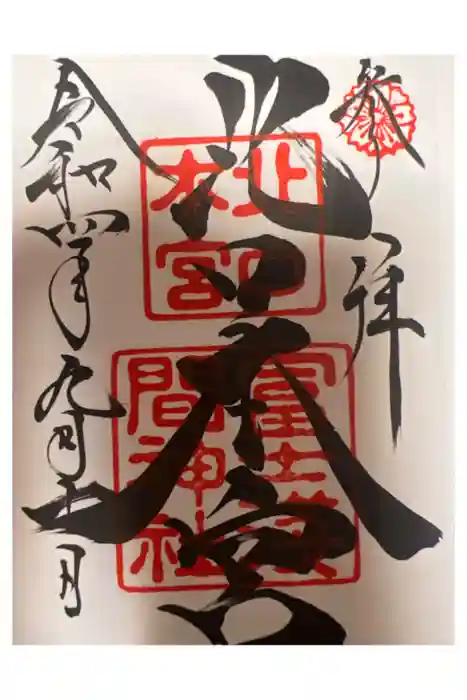 奉拝
北口本宮
北口
本宮
富士淺
間神社
令和四年九月十一日